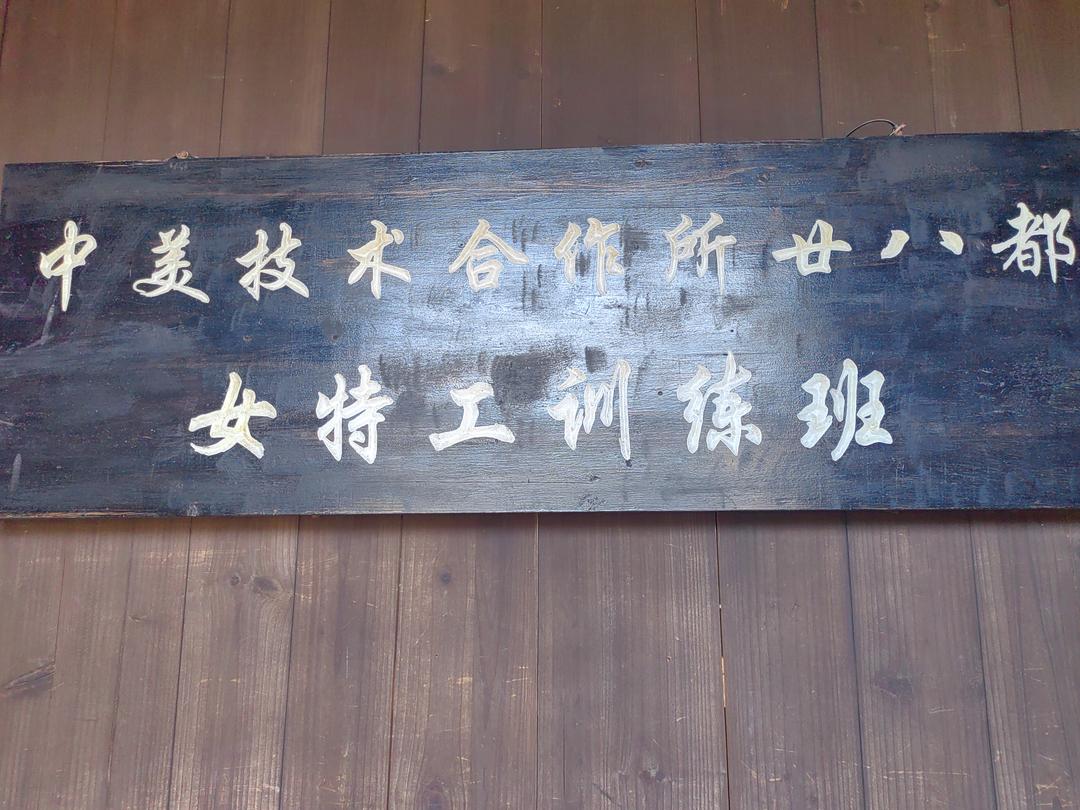 中美技术合作所廿八都
女特工训练班